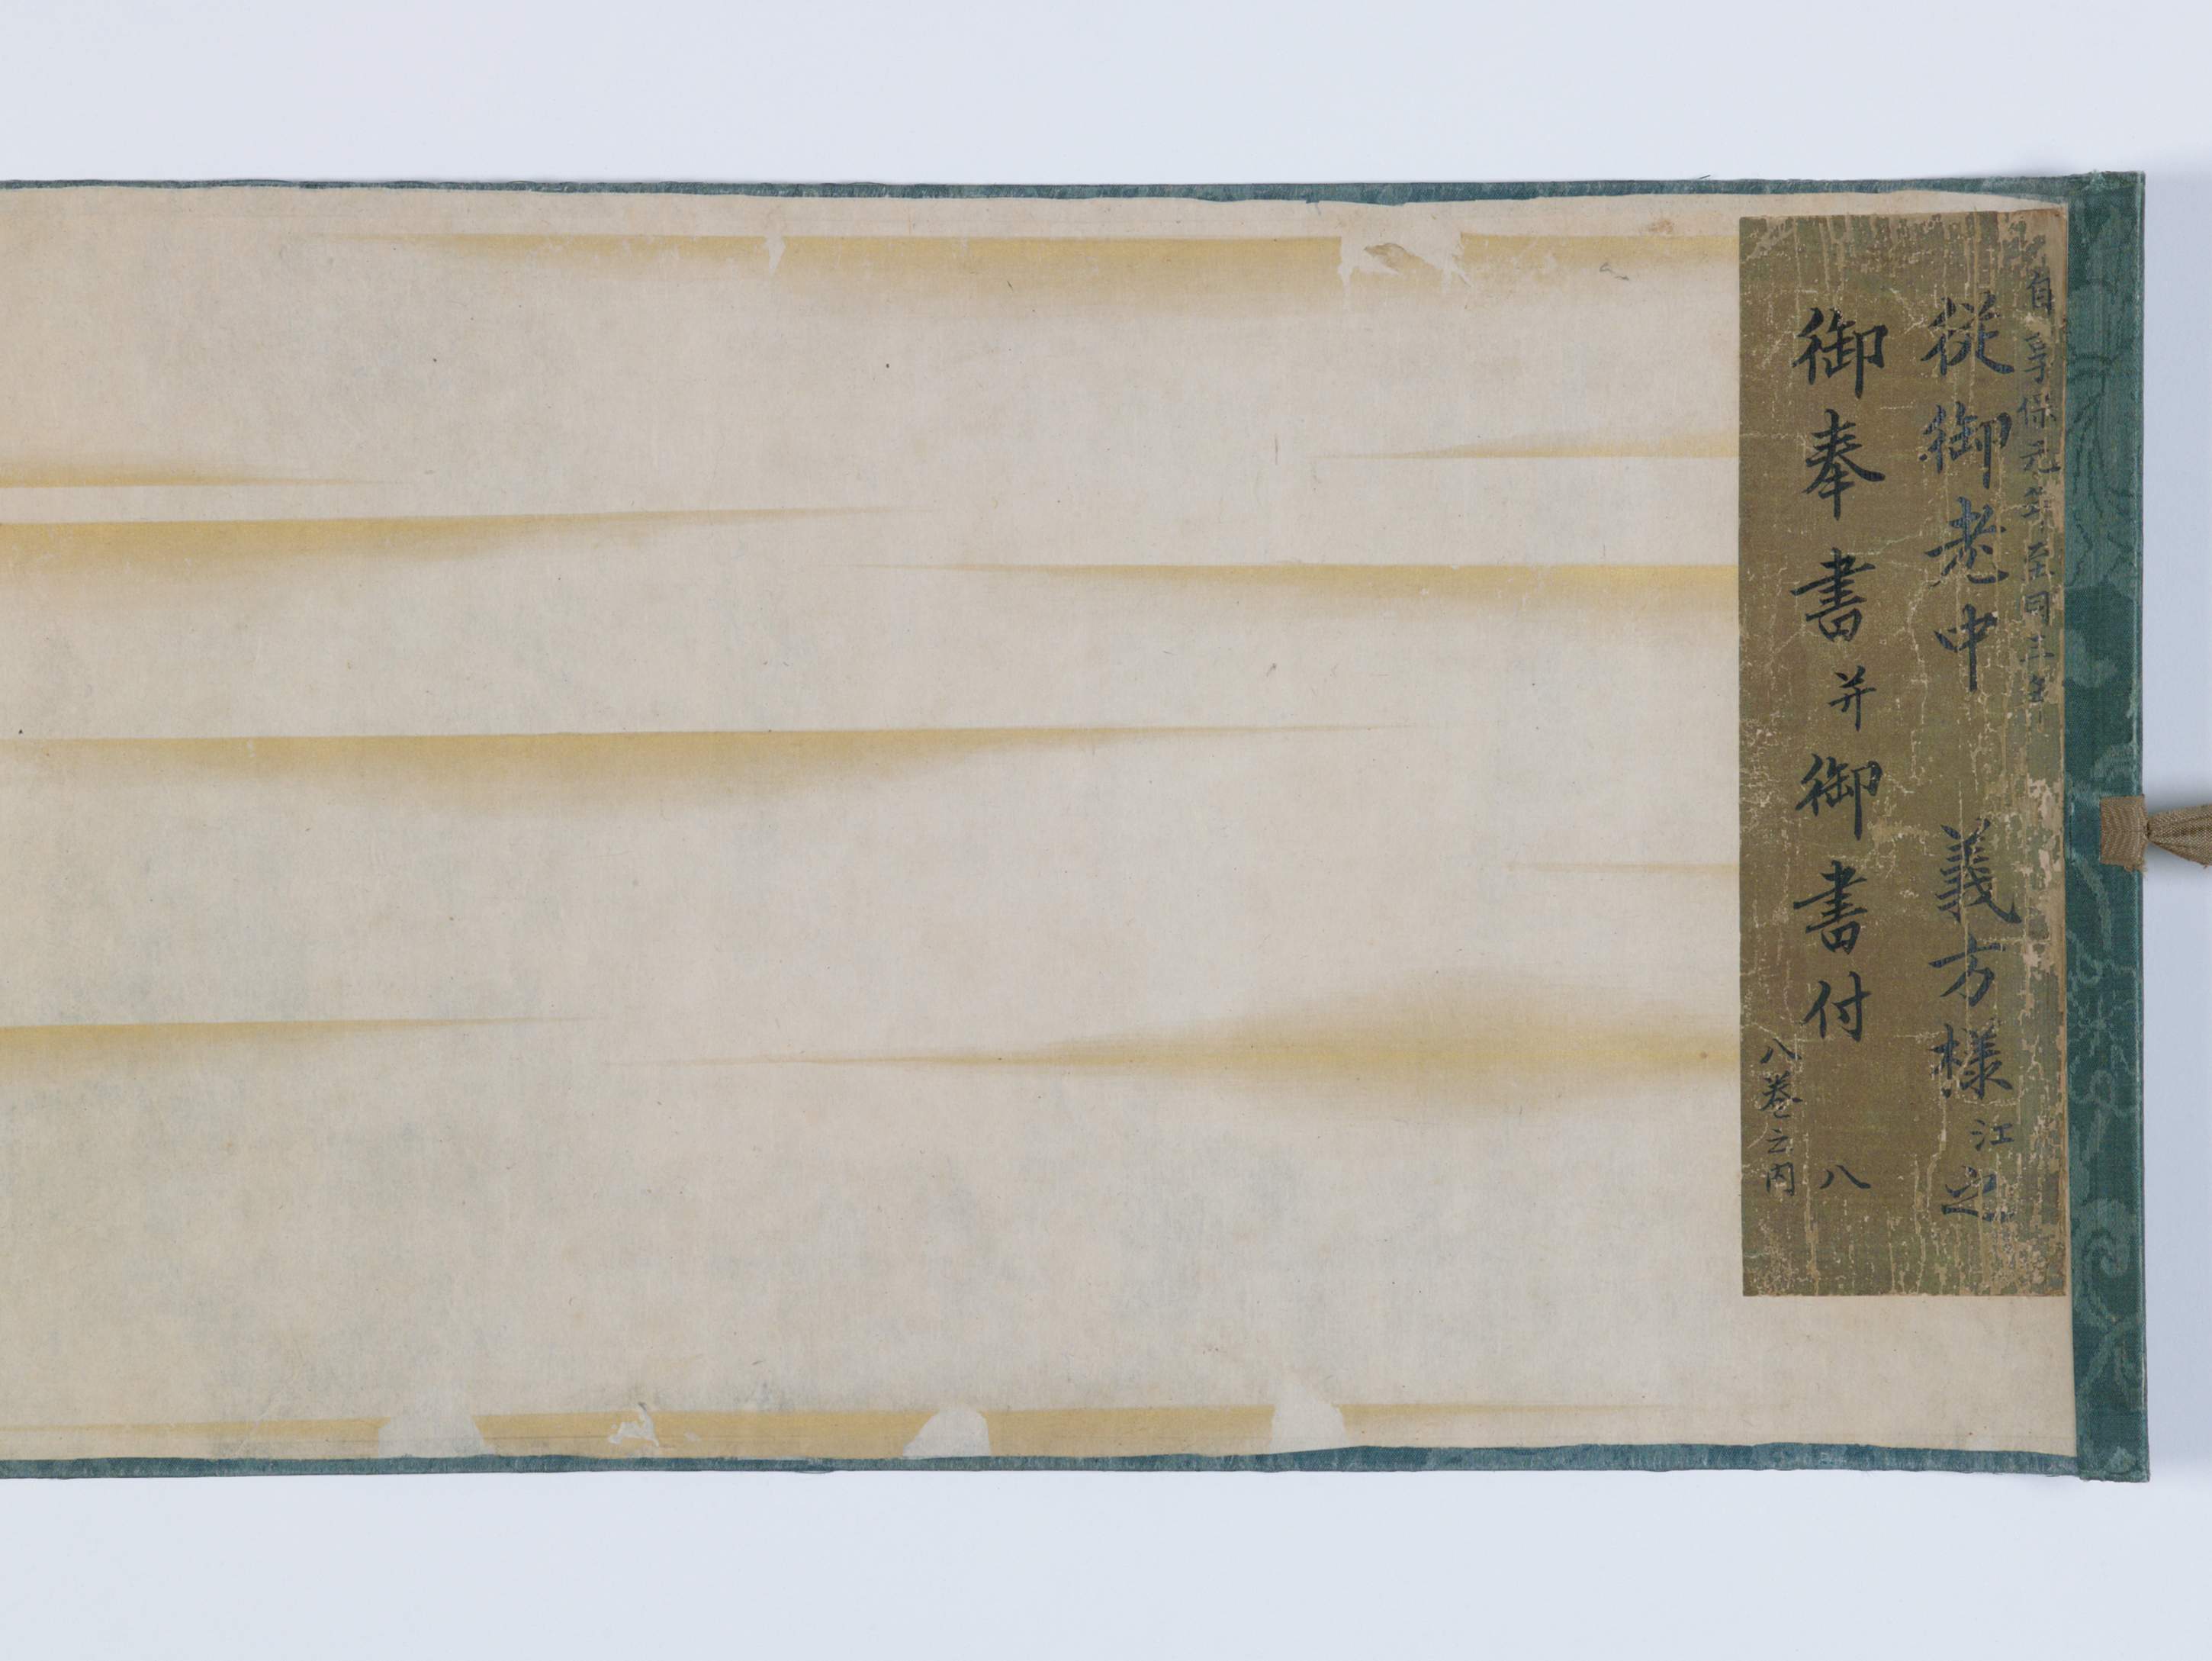 自享保元年至同三年
従御老中 義方様江之
御奉書并御書付 八
八巻之内